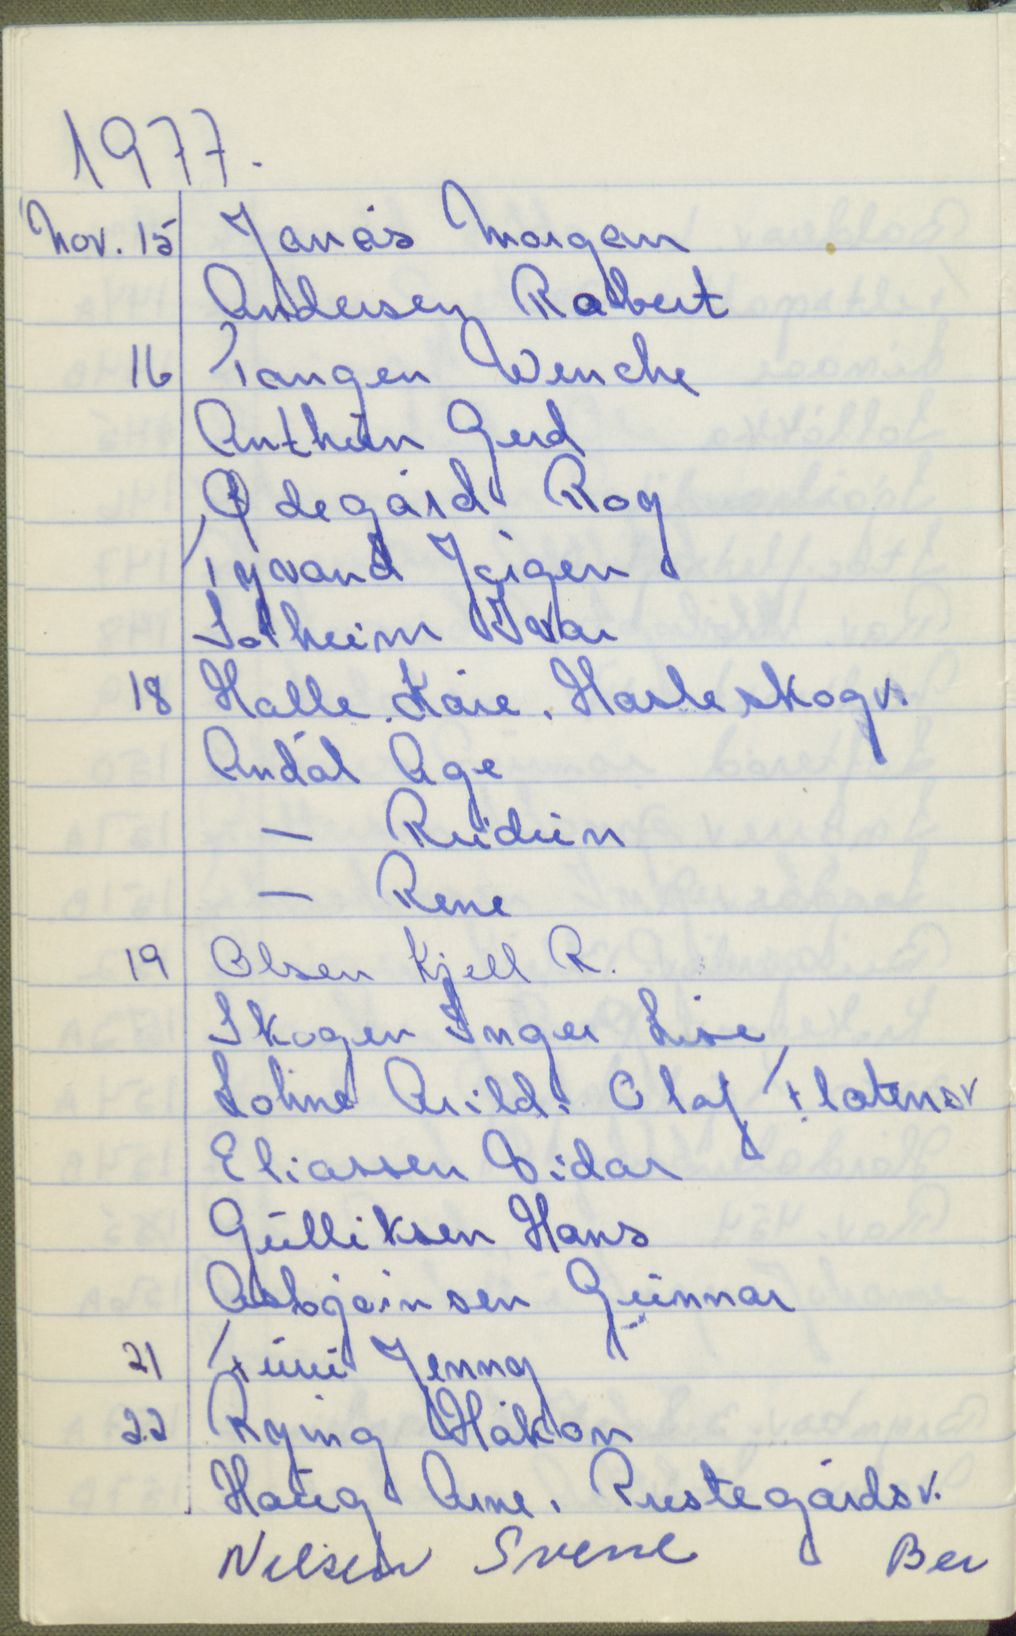 1977.
Nov. 15 Janås Morgan
Andersen Robert
16 Tangen Wenche
Anthun Gerd
Ødegård Roy
Tyvand Jørgen
Solheim Ivar
18 Halle Kåre. Hasleskogv.
Andål Åge
— Reidun
— Rene
19 Olsen Kjell R.
Skogen Inger Lise
Lohne Arild: Olaf Flatensv
Eliassen Vidar
Gulliksen Hans
Asbjørnsen Gunnar
21 Jenny
22 Rying Håkon
Haug Arne. Prestegårdsv.
Nilsen Sverre Ber